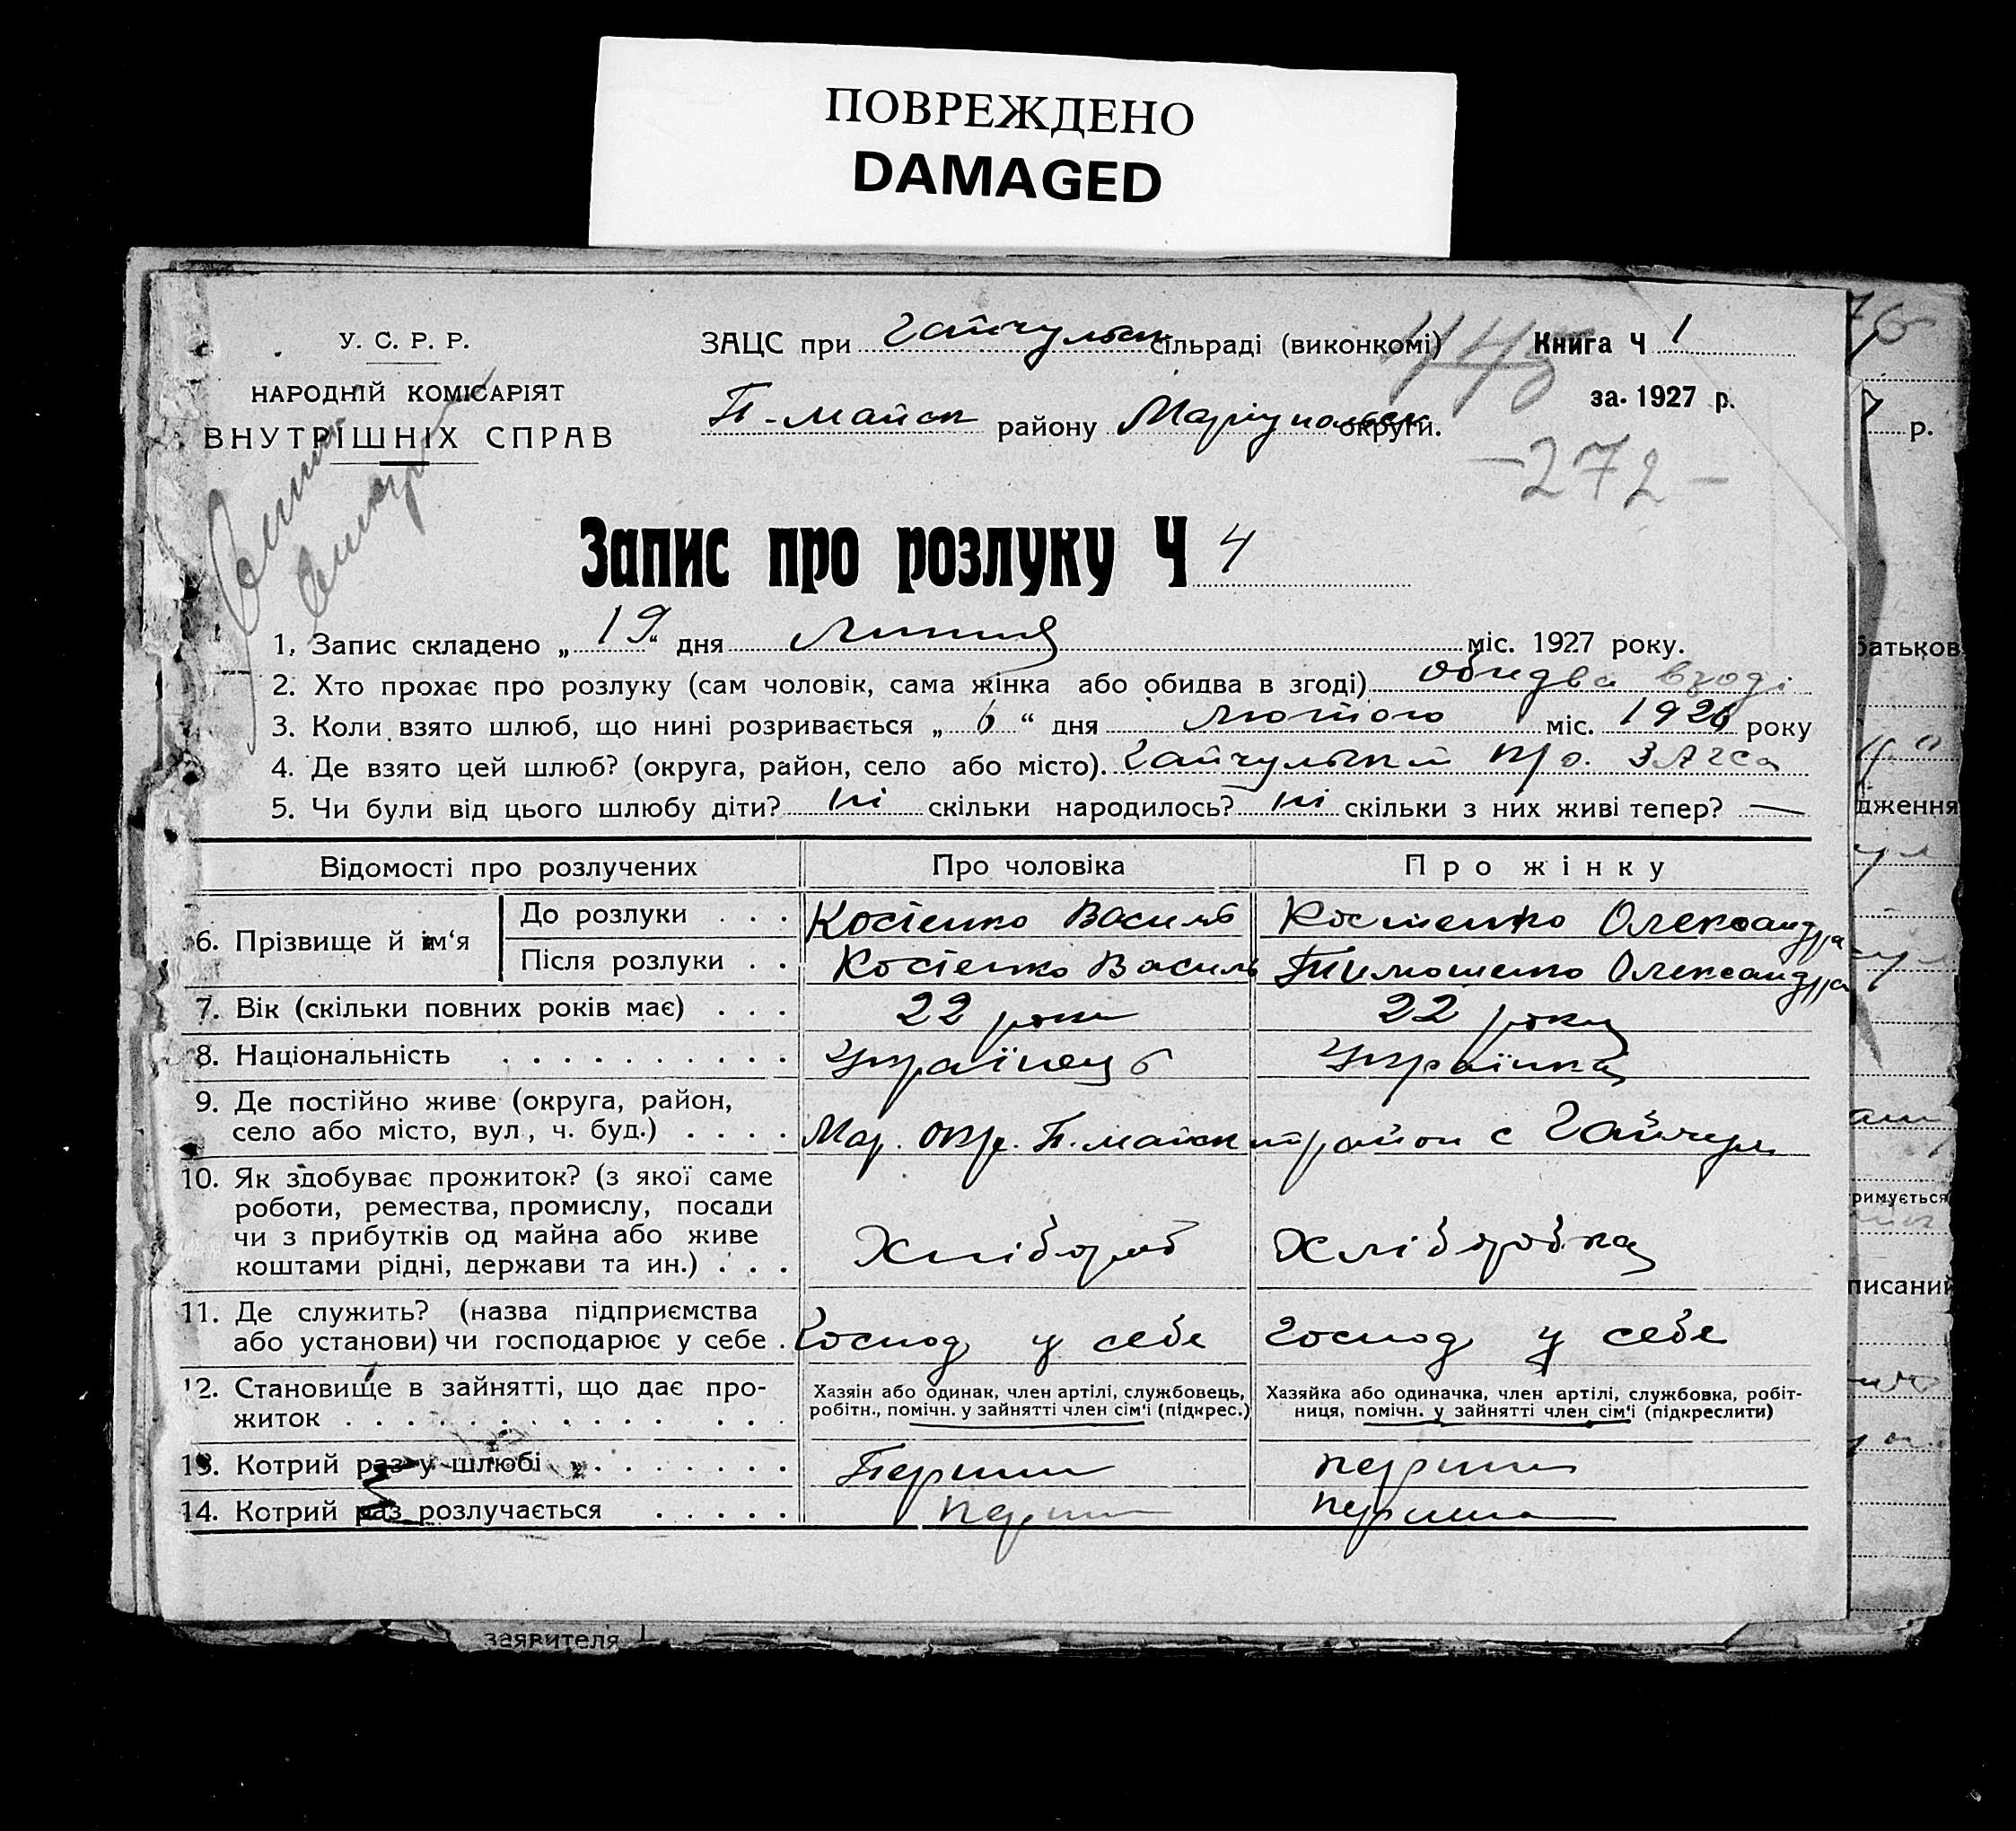 ПОВРЕЖДЕНО
DAMAGED
У. С. Р. Р.
НАРОДНІЙ КОМІСАРІЯТ
ВНУТРІШНІХ СПРАВ
ЗАЦС при Гайчульск сільраді (виконкомі)
Книга Ч 1
П-майськ району Маріупольськ округи.
за 1927 р.
-272-
Запис про розлуку Ч 4
1. Запис складено „ 19 “ дня Липня міс. 1927 року.
2. Хто прохає про розлуку (сам чоловік, сама жінка або обидва в згоді) обидва взгоді
3. Коли взято шлюб, що нині розривається „ 6 “ дня лютого міс. 1926 року
4. Де взято цей шлюб? (округа, район, село або місто). Гайчульский ЗАГСа
5. Чи були від цього шлюбу діти? ні скільки народилось? ні скільки з них живі тепер? —
Відомості про розлучених Про чоловіка Про жінку
6. Прізвище й ім‘я До розлуки . . . Костенко Василь Костенко Олександра
Після розлуки . . Костенко Василь Тимошенко Олександра
7. Вік (скільки повних років має) . . . 22 роки 22 роки
8. Національність . . . . . . . . . . Українець Українка
9. Де постійно живе (округа, район,
село або місто, вул., ч. буд.) . . . . Мар. окр. П. майський район с Гайчул
10. Як здобуває прожиток? (з якої саме
роботи, ремества, промислу, посади
чи з прибутків од майна або живе
коштами рідні, держави та ин.) . . . Хлібороб Хліборобка
11. Де служить? (назва підприємства
або установи) чи господарює у себе . Господ у себе Господ у себе
12. Становище в зайнятті, що дає про-
житок . . . . . . . . . . . . .
Хазяїн або одинак, член артілі, службовець,
робітн., помічн. у зайнятті член сім‘ї (підкрес.)
Хазяйка або одиначка, член артілі, службовка, робіт-
ниця, помічн. у зайнятті член сім‘ї (підкреслити)
13. Котрий раз у шлюбі . . . . . . . Перший перший
14. Котрий раз розлучається . . . . . перший перший
р.
батьков
дження
римується
писаний
заявителя